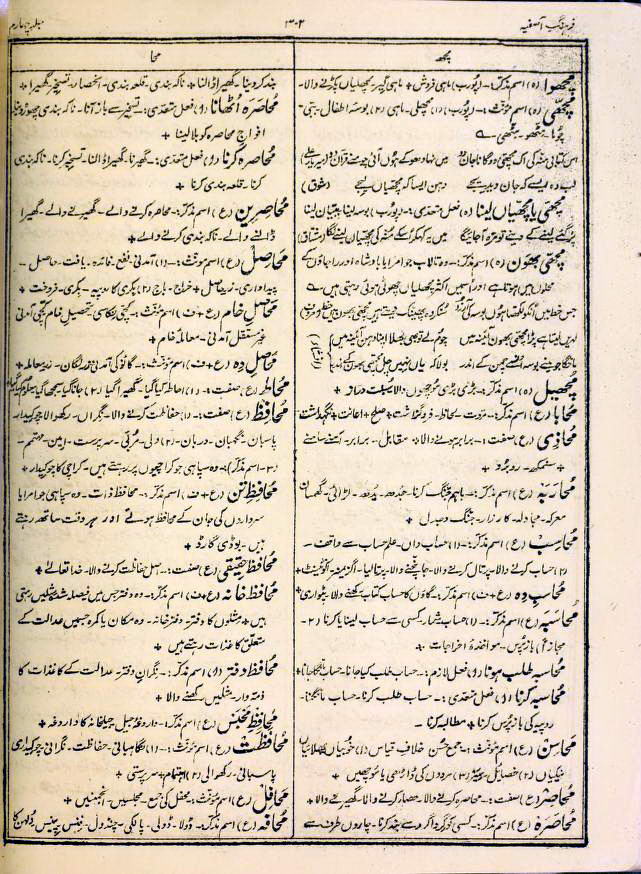 فرہنگِ آصفیہ
۳۰۲
جلد چہارم
مچھ
محا
مچھوا (ہ) اسم مذکر :۔ (پورب) ماہی فروش + ماہی گیر۔ مچھلیاں پکڑنے والا۔
مچھی (ہ) اسم مؤنث :۔ (پورب) (۱) مچھلی۔ ماہی (۲) بوسہ اطفال۔
لب دہ ایسے کہ جان دیجیے دہن ایسا کہ مچھیاں لیجے (شوق)
مچھی یا مچھیاں لینا (ہ) فعل متعدی :۔ (پورب) بوسہ لینا۔
مچھی بھون (ہ) اسم مذکر :۔ وہ تالاب جو امرا یا بادشاہ اور راجاؤں کے
محلوں میں ہوتا ہے اور اُسمیں اکثر مچھلیاں چھوٹی ہوئی رہتی ہیں ؎
مچھیل (ہ) اسم مذکر :۔ بڑی بڑی مونچھوں والا
محابا (ع) اسم مذکر :۔ مروت۔ لحاظ۔ فروگذاشت + صلح + اعانت + نگہداشت
محاذی (ع) صفت :۔ برابر ہونے والا۔ مقابل۔ برابر۔ آمنے سامنے
+ سنمکھ۔ روبرو +
محاربہ (ع) اسم مذکر :۔ باہم جنگ کرنا۔ جدھ۔ یدھ۔ لڑائی۔ گھمسان
معرکہ۔ مجادلہ۔ کارزار۔ جنگ و جدل +
محاسب (ع) اسم مذکر :۔ (۱) حساب داں۔ علم حساب سے واقف۔
(۲) حساب کرنے والا۔ پڑتال کرنے والا۔ جانچنے والا۔ پڑتالیا۔
محاسبِ دِہ (ع + ف) اسم مذکر :۔ گاؤں کا حساب کتاب رکھنے والا۔ پٹواری +
محاسبہ (ع) اسم مذکر :۔ (۱) حساب شمار۔ کسی سے حساب لینا یا کرنا (۲۔
مجازاً) بازپرس۔ مواخذۂ اخراجات +
محاسبہ طلب ہونا (و) فعل لازم :۔ حساب طلب کیا جانا۔ حساب مانگا جانا +
محاسبہ کرنا (و) فعل متعدی :۔ حساب طلب کرنا۔ حساب مانگنا۔
روپیہ کی بازپرس کرنا + مطالبہ کرنا ۔
محاسن (ع) اسم مؤنث :۔ جمع حسن خلاف قیاس (۱) خوبیاں بھلائیاں
نیکیاں (۲) خصائل پسندیدہ (۳) مردوں کی ڈاڑھی یا مونچھیں +
محاصر (ع) صفت :۔ محاصرہ کرنے والا۔ حصار کرنے والا۔ گھیرنے والا +
محاصرہ (ع) اسم مذکر :۔ کسی کو گرداگرد سے بند کرنا۔ چاروں طرف سے
بند کر دینا۔ گھیرا ڈالنا + ناکہ بندی۔ قلعہ بندی۔ انحصار۔ تسخیر۔ گھیرا +
محاصرہ اُٹھانا (و) فعل متعدی :۔ تسخیر سے باز آنا۔ ناکہ بندی چھوڑ دینا
افواج محاصرہ کو بلا لینا +
محاصرہ کرنا (و) فعل متعدی :۔ گھیرنا۔ گھیرا ڈالنا۔ تسخیر کرنا۔ ناکہ بندی
کرنا۔ قلعہ بندی کرنا +
محاصرین (ع) اسم مذکر :۔ محاصرہ کرنے والے۔ گھیرنے والے۔ گھیرا
ڈالنے والے۔ ناکہ بندی کرنے والے +
محاصل (ع) اسم مؤنث :۔ (۱) آمدنی۔ نفع۔ فائدہ۔ یافت۔ حاصل۔
پیداواری۔ زر حاصل + خراج۔ باج (۲) بکری کا روپیہ۔ بکری۔ فروخت +
محاصلِ خام (ع + ف) اسم مؤنث :۔ کچی نکاسی۔ تحصیل خام۔ کچی آمدنی
غیر مستقل آمدنی۔ معاملۂ خام +
محاصلِ دِہ (ع + ف) اسم مؤنث :۔ گاؤں کی آمدنی۔ زرِ لگان۔ زرِ معاملہ +
محاط (ع) صفت :۔ (۱) احاطہ کیا گیا۔ گھیرا گیا (۲) جانا گیا۔ سمجھا گیا
محافظ (ع) صفت :۔ (۱) حفاظت کرنے والا۔ نگراں۔ رکھوالا۔ چوکیدار
پاسبان۔ نگہبان۔ دربان (۲) ولی۔ مربی۔ سرپرست۔ امین۔ مہتمم۔
(۳۔ اسم مذکر) وہ سپاہی جو کراچیوں پر رہتے ہیں۔ کراچی کا چوکیدار +
محافظِ تن (ع + ف) اسم مذکر :۔ محافظ ذات۔ وہ سپاہی جو امرا یا
سرداروں کی جان کے محافظ ہوتے اور ہر وقت ساتھ رہتے
ہیں۔ بوڈی گارڈ +
محافظِ حقیقی (ع) صفت :۔ اصل حفاظت کرنے والا۔ خدا تعالےٰ +
محافظ خانہ (ع + ف) اسم مذکر :۔ وہ دفتر جس میں فیصلہ شدہ مثلیں رہتی
ہیں + مثلوں کا دفتر + دفتر خانہ۔ وہ مکان یا کمرہ جسمیں عدالت کے
متعلق کاغذات رہتے ہیں +
محافظ دفتر (و) اسم مذکر :۔ نگران دفتر۔ عدالت کے کاغذات کا
ذمہ دار۔ مثلیں رکھنے والا +
محافظِ محبس (ع) اسم مذکر :۔ داروغۂ جیل۔ جیلخانہ کا داروغہ +
محافظت (ع) اسم مؤنث :۔ (۱) نگاہبانی۔ حفاظت۔ نگرانی۔ چوکیداری
پاسبانی۔ رکھوالی (۲) اہتمام + سرپرستی +
محافل (ع) اسم مؤنث :۔ محفل کی جمع۔ مجلسیں۔ انجمنیں +
محافہ (ع) اسم مذکر :۔ ڈولا۔ ڈولی۔ پالکی۔ چنڈول۔ فینس پینس۔ دولہن کا